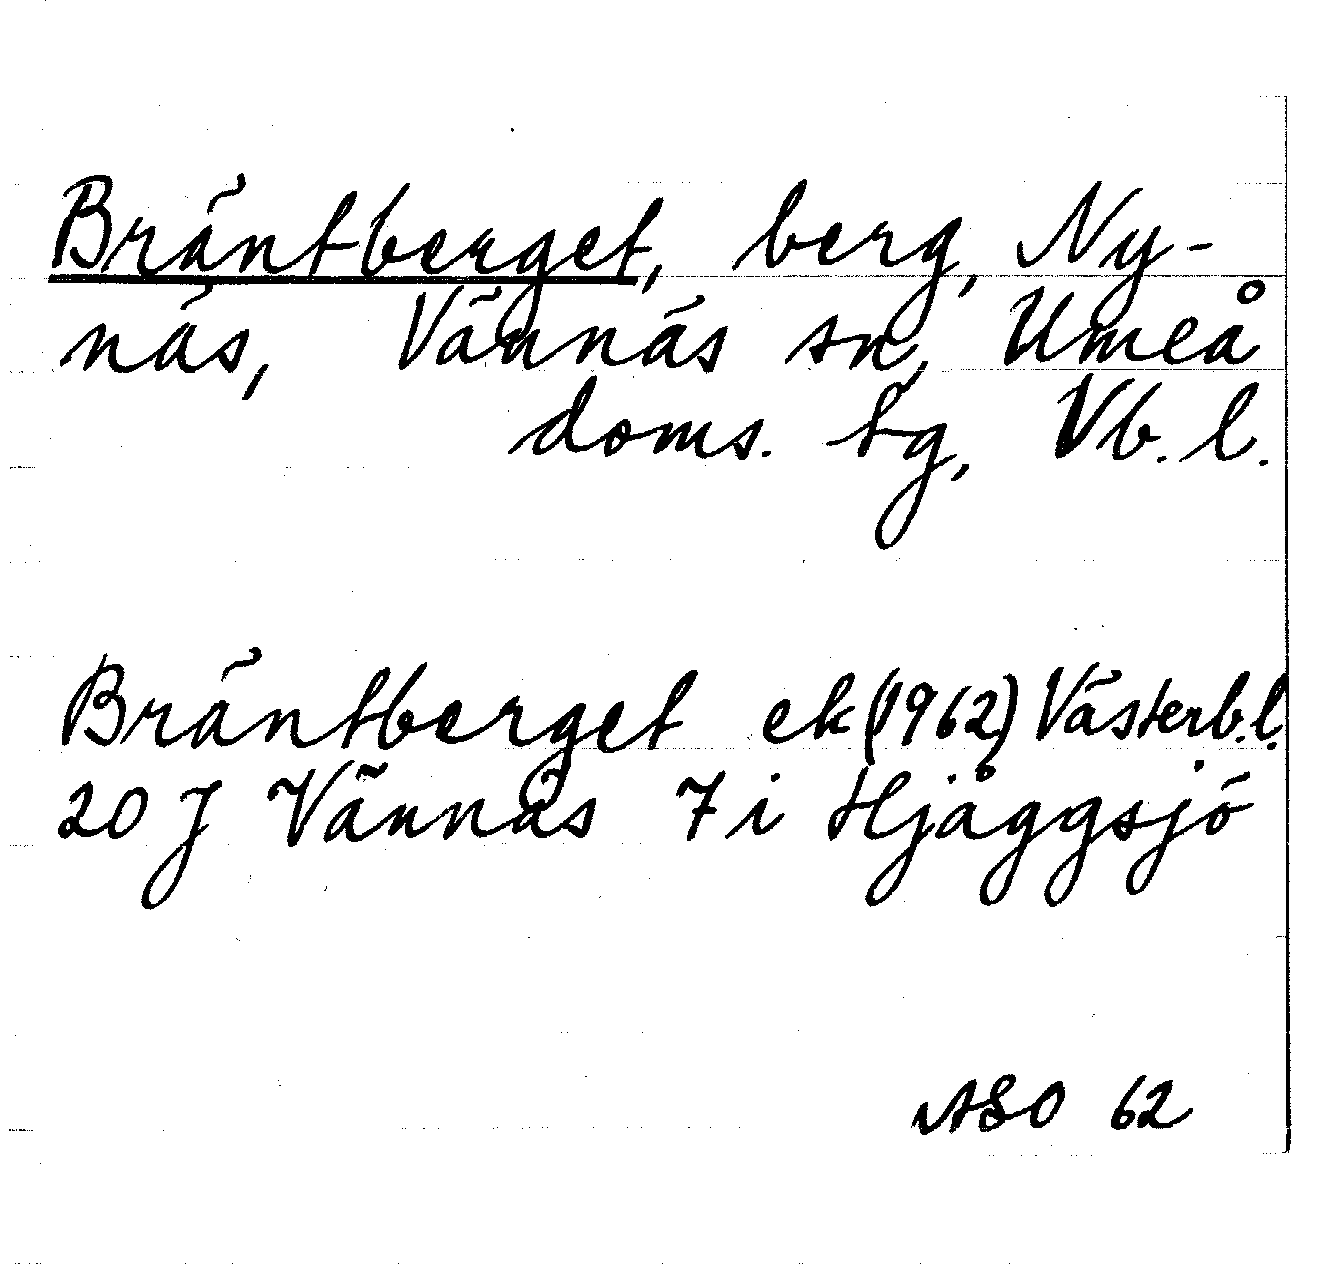 Bräntberget, berg, Ny-
näs, Vännäs sn, Umeå
doms. tg, Vb. l.
Bräntberget ek (1962) Västerb.l.
20 J Vännäs 7 i Hjåggsjö
ASO 62